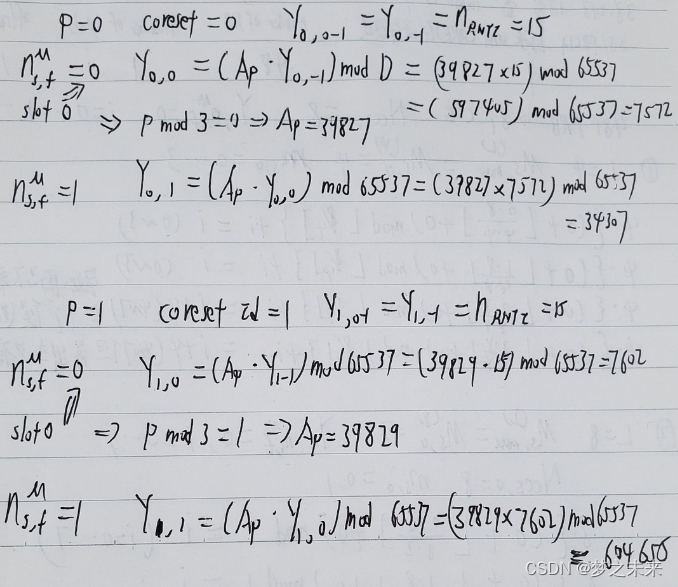 P=0 coreset=0 Y₀,₀₋₁ = Y₀,₋₁ = n_RNTI = 15
n^μ_s,f = 0 Y₀,₀ = (Ap · Y₀,₋₁) mod D = (39827×15) mod 65537
slot 0 = (597405) mod 65537 = 7572
⇒ P mod 3 = 0 ⇒ Ap = 39827
n^μ_s,f = 1 Y₀,₁ = (Ap · Y₀,₀) mod 65537 = (39827×7572) mod 65537
= 34307
P=1 coreset id = 1 Y₁,₀₋₁ = Y₁,₋₁ = n_RNTI = 15
n^μ_s,f = 0 Y₁,₀ = (Ap · Y₁,₋₁) mod 65537 = (39829 · 15) mod 65537 = 7602
slot 0 ⇒ P mod 3 = 1 ⇒ Ap = 39829
n^μ_s,f = 1 Y₁,₁ = (Ap · Y₁,₀) mod 65537 = (39829×7602) mod 65537
= 604650
CSDN @梦之未来